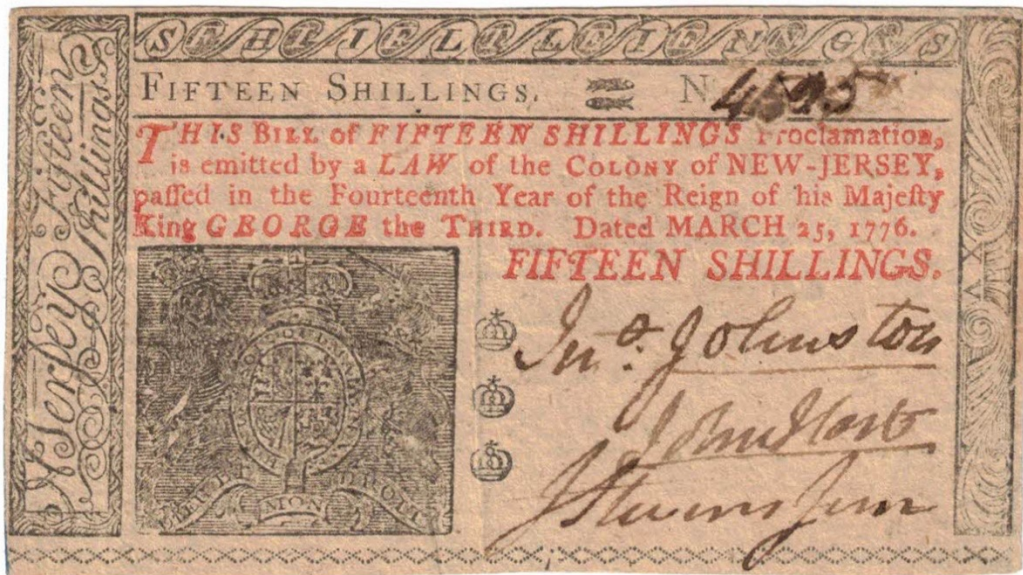 FIFTEEN SHILLINGS. N
THIS BILL of FIFTEEN SHILLINGS Proclamation,
is emitted by a LAW of the COLONY of NEW-JERSEY,
paſſed in the Fourteenth Year of the Reign of his Majeſty
King GEORGE the THIRD. Dated MARCH 25, 1776.
FIFTEEN SHILLINGS.
Jno. Johnston
John Hart
J Stevens Junr
N. Jerſey Fifteen
Shillings
MON DROIT